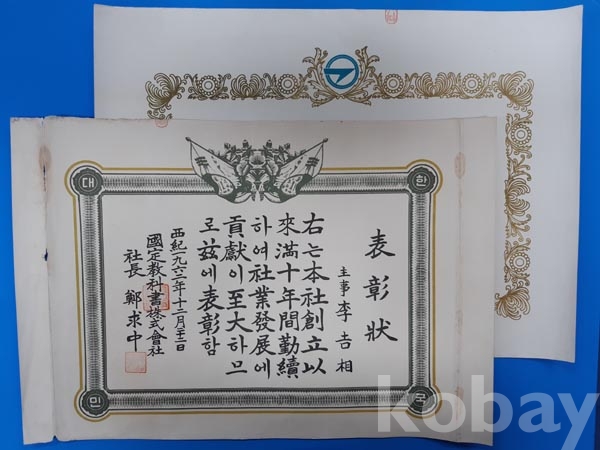 대
한
민
국
表彰狀
主事 李吉相
右는本社創立以
來滿十年間勤續
하여社業發展에
貢獻이至大하므
로玆에表彰함
西紀一九六二年十二月二十二日
國定敎科書株式會社
社長 鄭求中
kobay